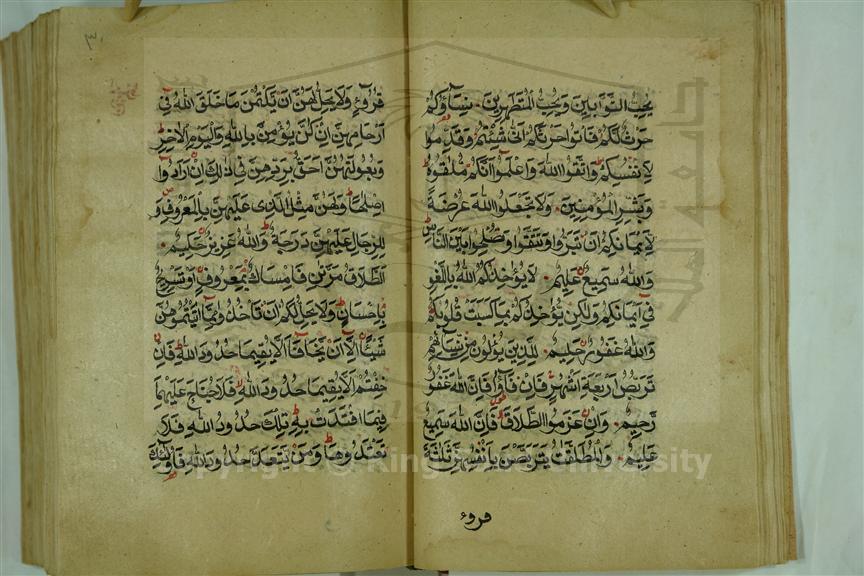 يحب التوابين ويحب المتطهرين نساؤكم
حرث لكم فاتوا حرثكم انى شئتم وقدموا
لانفسكم واتقوا الله واعلموا انكم ملقوه
وبشر المؤمنين ولا تجعلوا الله عرضة
لايمانكم ان تبروا وتتقوا وتصلحوا بين الناس
والله سميع عليم لا يؤخذكم الله باللغو
في ايمانكم ولكن يؤخذكم بما كسبت قلوبكم
والله غفور حليم للذين يؤلون من نسائهم
تربص اربعة اشهر فان فاؤ فان الله غفو
رحيم وان عزموا الطلاق فان الله سميع
عليم والمطلقت يتربصن بانفسهن ثلثة
قروء
٣٠
قروء ولا يحل لهن ان يكتمن ما خلق الله في
ارحامهن ان كن يؤمن بالله واليوم الاخر
وبعولتهن احق بردهن في ذلك ان ارادوا
اصلحا ولهن مثل الذي عليهن بالمعروف و
للرجال عليهن درجة والله عزيز حكيم
الطلاق مرتن فامساك بمعروف او تسريح
باحسان ولا يحل لكم ان تاخذوا مما اتيتموهن
شيئا الا ان يخافا الا يقيما حدود الله فان
خفتم الا يقيما حدود الله فلا جناح عليهما
فيما افتدت به تلك حدود الله فلا
تعتدوها ومن يتعد حدود الله فاولئك
Copyright © King Saud University